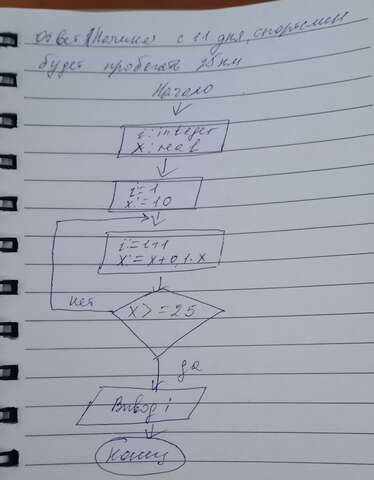 Ответ: Начиная с 11 дня, спортсмен
будет пробегать 25 км
Начало
i: integer
x: real
i:=1
x:=10
i:=1+1
x:=x+0,1·x
нет
x>=25
да
Вывод i
Конец